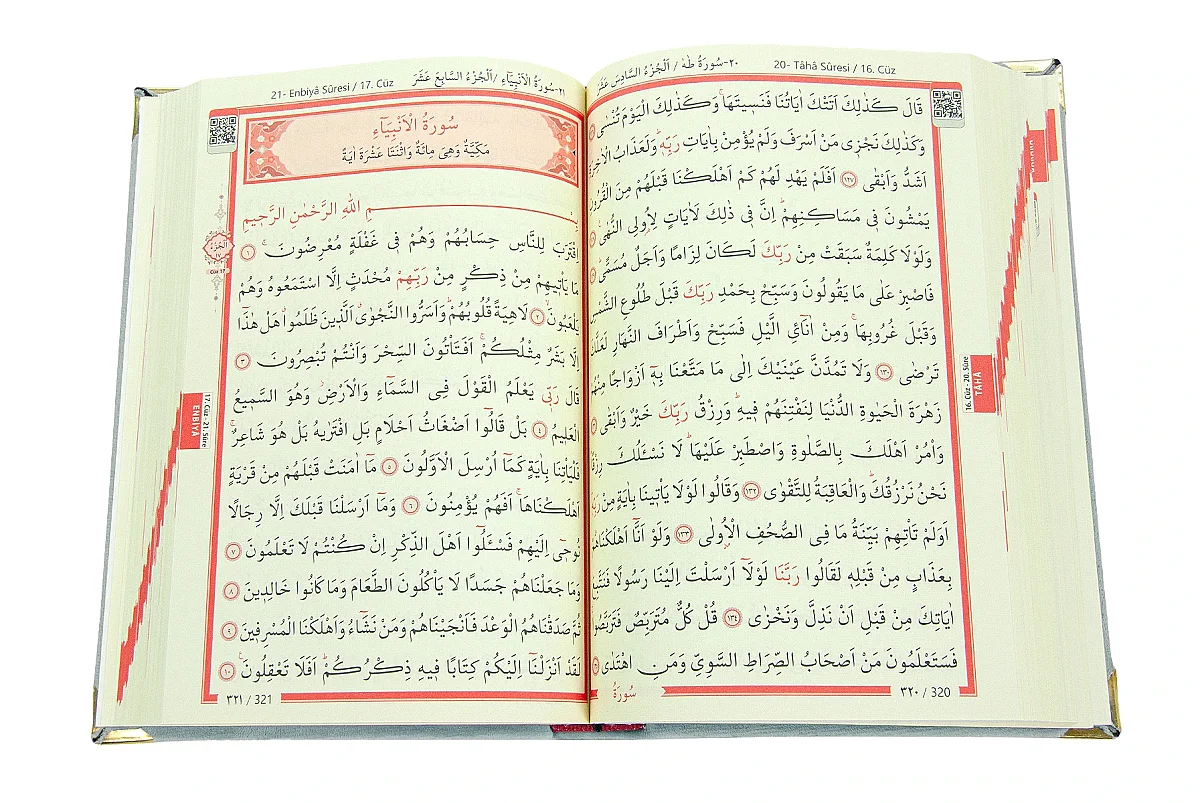 ٢٠-سُورَةُ طٰهٰ / اَلْجُزْءُ السَّادِسَ عَشَرَ 20- Tâhâ Sûresi / 16. Cüz
قَالَ كَذٰلِكَ اَتَتْكَ اٰيَاتُنَا فَنَسٖيتَهَاۚ وَكَذٰلِكَ الْيَوْمَ تُنْسٰى
وَكَذٰلِكَ نَجْزٖى مَنْ اَسْرَفَ وَلَمْ يُؤْمِنْ بِاٰيَاتِ رَبِّهٖؕ وَلَعَذَابُ الْاٰخِرَةِ
اَشَدُّ وَاَبْقٰى ﴿١٢٧﴾ اَفَلَمْ يَهْدِ لَهُمْ كَمْ اَهْلَكْنَا قَبْلَهُمْ مِنَ الْقُرُونِ
يَمْشُونَ فٖى مَسَاكِنِهِمْؕ اِنَّ فٖى ذٰلِكَ لَاٰيَاتٍ لِاُولِى النُّهٰى
وَلَوْلَا كَلِمَةٌ سَبَقَتْ مِنْ رَبِّكَ لَكَانَ لِزَامًا وَاَجَلٌ مُسَمًّى
فَاصْبِرْ عَلٰى مَا يَقُولُونَ وَسَبِّحْ بِحَمْدِ رَبِّكَ قَبْلَ طُلُوعِ الشَّمْسِ
وَقَبْلَ غُرُوبِهَاۚ وَمِنْ اٰنَٓائِ الَّيْلِ فَسَبِّحْ وَاَطْرَافَ النَّهَارِ لَعَلَّكَ
تَرْضٰى ﴿١٣٠﴾ وَلَا تَمُدَّنَّ عَيْنَيْكَ اِلٰى مَا مَتَّعْنَا بِهٖٓ اَزْوَاجًا مِنْهُمْ
زَهْرَةَ الْحَيٰوةِ الدُّنْيَا لِنَفْتِنَهُمْ فٖيهِؕ وَرِزْقُ رَبِّكَ خَيْرٌ وَاَبْقٰى
وَأْمُرْ اَهْلَكَ بِالصَّلٰوةِ وَاصْطَبِرْ عَلَيْهَاؕ لَا نَسْـَٔلُكَ رِزْقًاؕ
نَحْنُ نَرْزُقُكَؕ وَالْعَاقِبَةُ لِلتَّقْوٰى ﴿١٣٢﴾ وَقَالُوا لَوْلَا يَأْتٖينَا بِاٰيَةٍ مِنْ رَبِّهٖؕ
اَوَلَمْ تَأْتِهِمْ بَيِّنَةُ مَا فِى الصُّحُفِ الْاُولٰى ﴿١٣٣﴾ وَلَوْ اَنَّٓا اَهْلَكْنَاهُمْ
بِعَذَابٍ مِنْ قَبْلِهٖ لَقَالُوا رَبَّنَا لَوْلَٓا اَرْسَلْتَ اِلَيْنَا رَسُولًا فَنَتَّبِعَ
اٰيَاتِكَ مِنْ قَبْلِ اَنْ نَذِلَّ وَنَخْزٰى ﴿١٣٤﴾ قُلْ كُلٌّ مُتَرَبِّصٌ فَتَرَبَّصُواۚ
فَسَتَعْلَمُونَ مَنْ اَصْحَابُ الصِّرَاطِ السَّوِيِّ وَمَنِ اهْتَدٰى
سُورَةُ
٣٢٠ / 320
16. Cüz - 20. Sûre
TÂHÂ
21- Enbiyâ Sûresi / 17. Cüz ٢١-سُورَةُ الْاَنْبِيَٓاءِ / اَلْجُزْءُ السَّابِعَ عَشَرَ
سُورَةُ الْاَنْبِيَٓاءِ
مَكِّيَّةٌ وَهِىَ مِائَةٌ وَاثْنَتَا عَشْرَةَ اٰيَةً
بِسْمِ اللّٰهِ الرَّحْمٰنِ الرَّحٖيمِ
اِقْتَرَبَ لِلنَّاسِ حِسَابُهُمْ وَهُمْ فٖى غَفْلَةٍ مُعْرِضُونَۚ ﴿١﴾
مَا يَأْتٖيهِمْ مِنْ ذِكْرٍ مِنْ رَبِّهِمْ مُحْدَثٍ اِلَّا اسْتَمَعُوهُ وَهُمْ
يَلْعَبُونَۙ ﴿٢﴾ لَاهِيَةً قُلُوبُهُمْؕ وَاَسَرُّوا النَّجْوٰىۗ اَلَّذٖينَ ظَلَمُواۗ هَلْ هٰذَٓا
اِلَّا بَشَرٌ مِثْلُكُمْۚ اَفَتَأْتُونَ السِّحْرَ وَاَنْتُمْ تُبْصِرُونَ ﴿٣﴾
قَالَ رَبّٖى يَعْلَمُ الْقَوْلَ فِى السَّمَٓاءِ وَالْاَرْضِؗ وَهُوَ السَّمٖيعُ
الْعَلٖيمُ ﴿٤﴾ بَلْ قَالُٓوا اَضْغَاثُ اَحْلَامٍ بَلِ افْتَرٰيهُ بَلْ هُوَ شَاعِرٌۚ
فَلْيَأْتِنَا بِاٰيَةٍ كَمَٓا اُرْسِلَ الْاَوَّلُونَ ﴿٥﴾ مَٓا اٰمَنَتْ قَبْلَهُمْ مِنْ قَرْيَةٍ
اَهْلَكْنَاهَاۚ اَفَهُمْ يُؤْمِنُونَ ﴿٦﴾ وَمَٓا اَرْسَلْنَا قَبْلَكَ اِلَّا رِجَالًا
نُوحٖٓى اِلَيْهِمْ فَسْـَٔلُٓوا اَهْلَ الذِّكْرِ اِنْ كُنْتُمْ لَا تَعْلَمُونَ ﴿٧﴾
وَمَا جَعَلْنَاهُمْ جَسَدًا لَا يَأْكُلُونَ الطَّعَامَ وَمَا كَانُوا خَالِدٖينَ ﴿٨﴾
ثُمَّ صَدَقْنَاهُمُ الْوَعْدَ فَاَنْجَيْنَاهُمْ وَمَنْ نَشَٓاءُ وَاَهْلَكْنَا الْمُسْرِفٖينَ ﴿٩﴾
لَقَدْ اَنْزَلْنَٓا اِلَيْكُمْ كِتَابًا فٖيهِ ذِكْرُكُمْؕ اَفَلَا تَعْقِلُونَۚ ﴿١٠﴾
٣٢١ / 321
اَلْجُزْءُ
١٧
Cüz 17
17. Cüz - 21. Sûre
ENBİYÂ